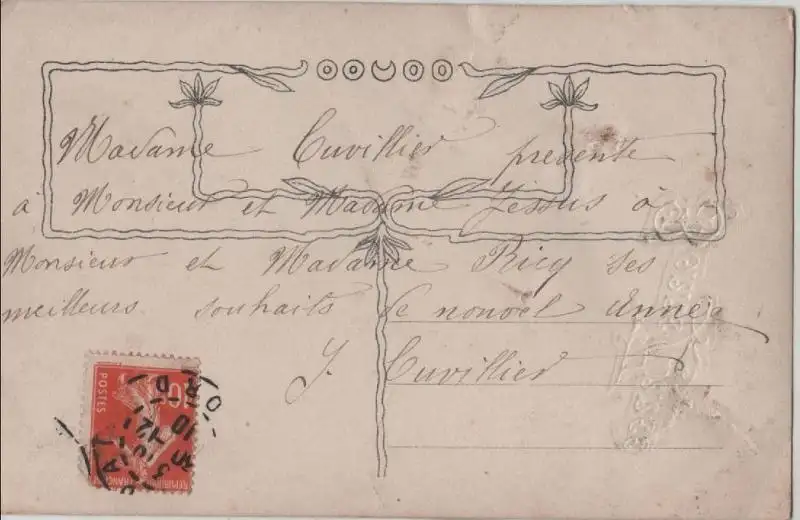 Madame Cuvillier presente
à Monsieur et Madame Jessus à
Monsieur et Madame Ricq ses
meilleurs souhaits de nouvel année
J. Cuvillier
POSTES
10